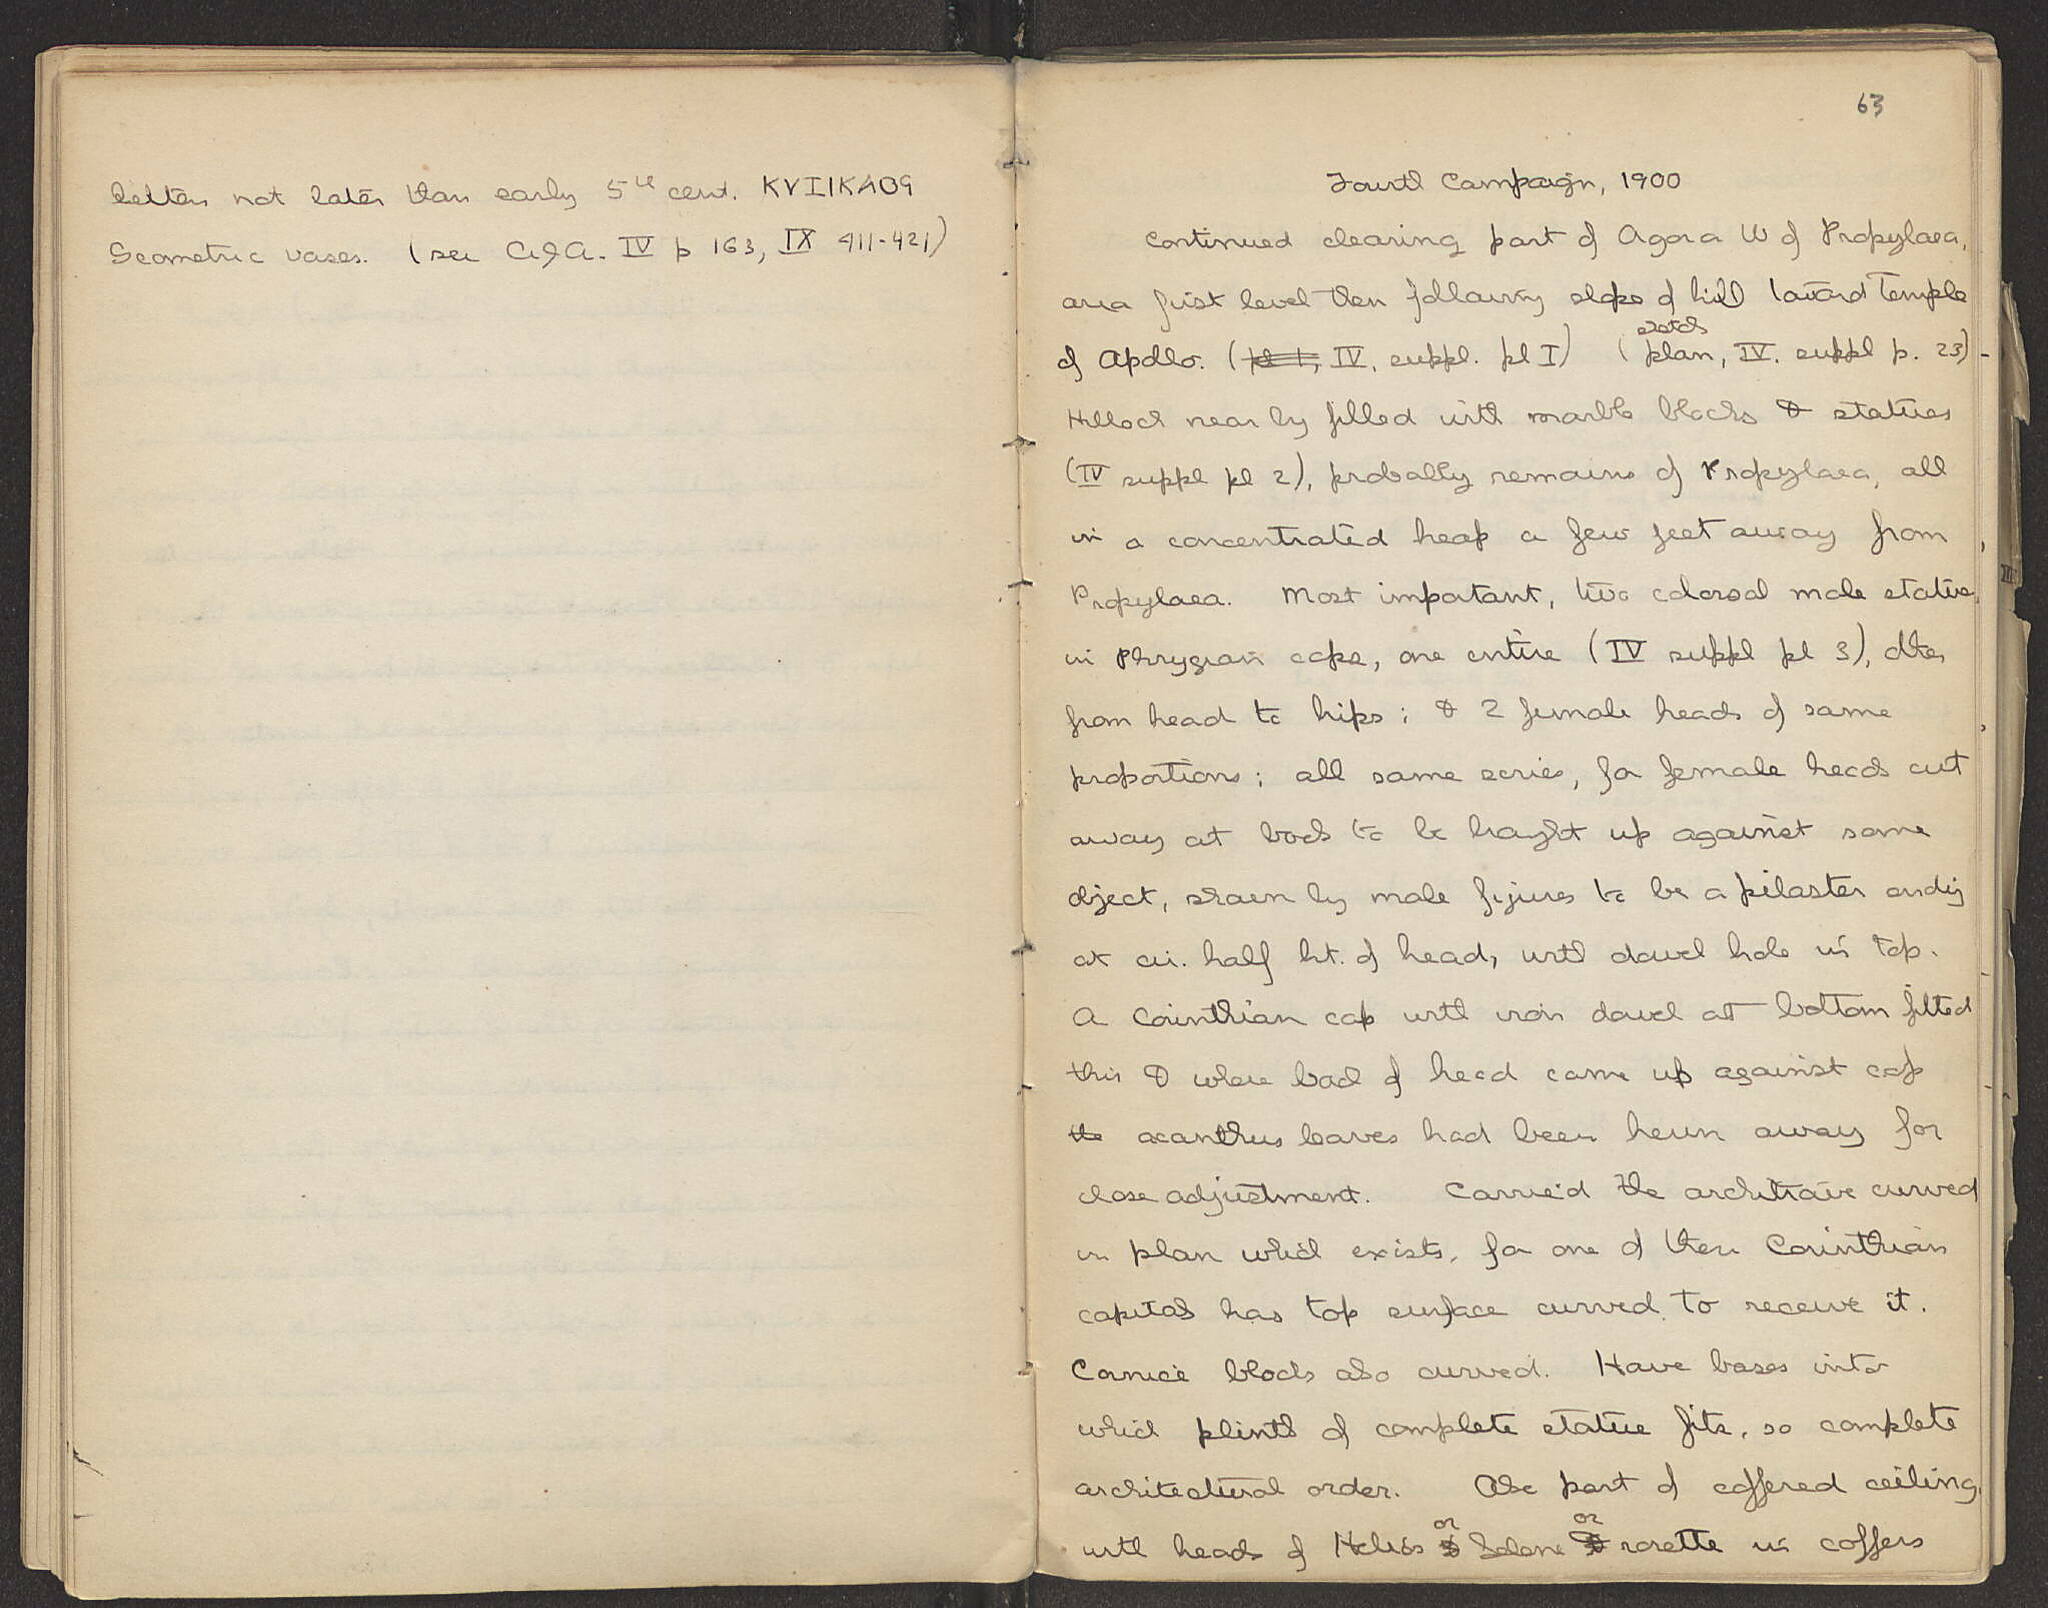 letters not later than early 5th cent. KVIIKAO9
Geometric vases. (see A.J.A. IV p 163, IX 411-421)
63
Fourth Campaign, 1900
Continued clearing part of Agora W of Propylaea,
area first level then following slope of hill toward Temple
sketch
of Apollo. (pl 1, IV. suppl. pl I) (plan, IV. suppl p. 23)
Hillock near by filled with marble blocks & statues
(IV suppl pl 2), probably remains of Propylaea, all
in a concentrated heap a few feet away from
Propylaea. Most important, two colossal male statues
in Phrygian caps, one entire (IV suppl pl 3), other
from head to hips; & 2 female heads of same
proportions; all same series, for female heads cut
away at back to be brought up against some
object, shown by male figures to be a pilaster ending
at ci. half ht. of head, with dowel hole in top.
A Corinthian cap with iron dowel at bottom fitted
this & where back of head came up against cap
the acanthus leaves had been hewn away for
close adjustment. Carried the architrave curved
in plan which exists, for one of these Corinthian
capitals has top surface curved to receive it.
Cornice blocks also curved. Have bases into
which plinth of complete statue fits, so complete
architectural order. Also part of coffered ceiling
or or
with heads of Helios & Selene & rosette in coffers